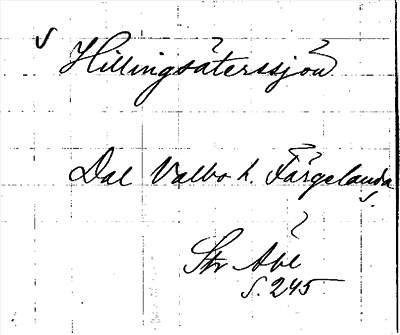 Hillingsätersjön
Dal Valbo h. Färgelanda
Str Abl
s. 245